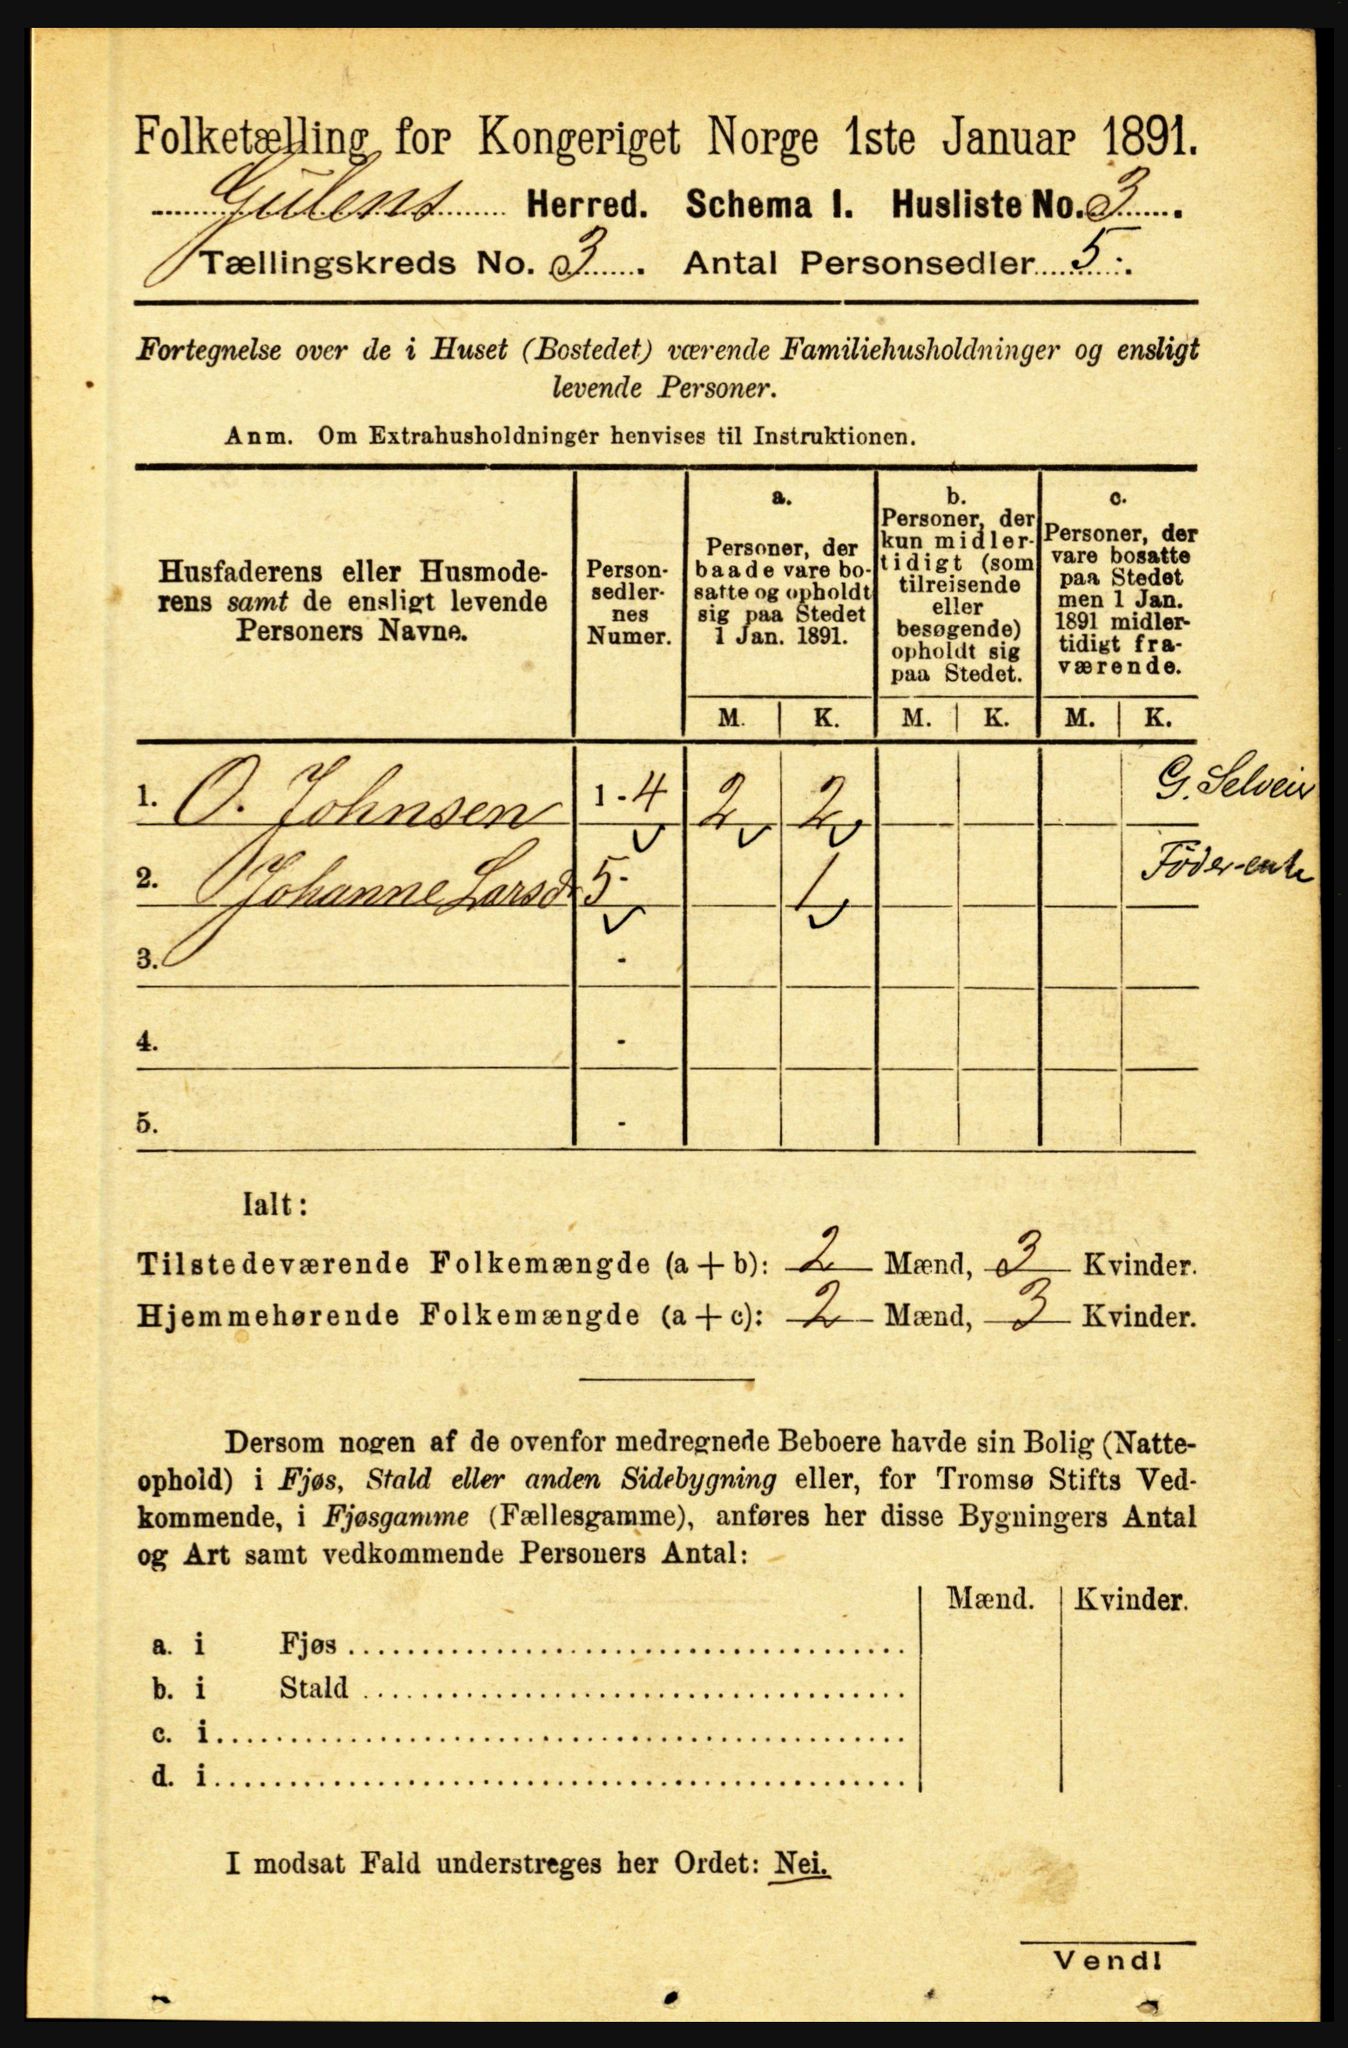 Folketælling for Kongeriget Norge 1ste Januar 1891.
Gulens Herred. Schema I. Husliste No. 3.
Tællingskreds No. 3. Antal Personsedler 5.
Fortegnelse over de i Huset (Bostedet) værende Familiehusholdninger og ensligt
levende Personer.
Anm. Om Extrahusholdninger henvises til Instruktionen.
Husfaderens eller Husmode-
rens samt de ensligt levende
Personers Navne.
Person-
sedler-
nes
Numer.
a.
Personer, der
baade vare bo-
satte og opholdt
sig paa Stedet
1 Jan. 1891.
b.
Personer, der
kun midler-
tidigt (som
tilreisende
eller
besøgende)
opholdt sig
paa Stedet.
c.
Personer, der
vare bosatte
paa Stedet
men 1 Jan.
1891 midler-
tidigt fra-
værende.
M. K. M. K. M. K.
1. O. Johnsen 1-4 2 2 G. Selveier
2. Johanne Larsd. 5- 1 Föder-enke
3. -
4. -
5. -
Ialt:
Tilstedeværende Folkemængde (a+b): 2 Mænd, 3 Kvinder.
Hjemmehørende Folkemængde (a+c): 2 Mænd, 3 Kvinder.
Dersom nogen af de ovenfor medregnede Beboere havde sin Bolig (Natte-
ophold) i Fjøs, Stald eller anden Sidebygning eller, for Tromsø Stifts Ved-
kommende, i Fjøsgamme (Fællesgamme), anføres her disse Bygningers Antal
og Art samt vedkommende Personers Antal:
Mænd. Kvinder.
a. i Fjøs
b. i Stald
c. i
d. i
I modsat Fald understreges her Ordet: Nei.
Vendl